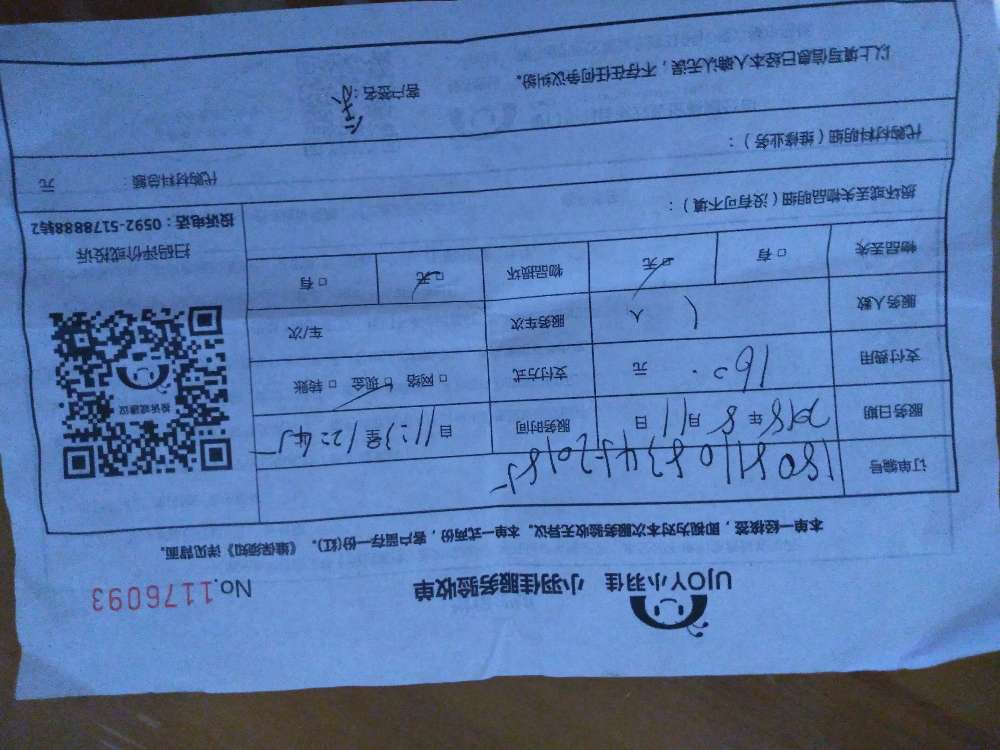 UJOY小羽佳 小羽佳服务验收单 No.1176093
本单一经核签，即视为对本次服务验收无异议。本单一式两份，客户留存一份(红)。《维保须知》详见背面。
订单编号
服务日期 2018年8月11日 服务时间 自11:23至12:45
支付费用 160. 元 支付方式 □网络 □现金 □转账
服务人数 1 人 服务车次 车/次
物品丢失 □有 □无 物品损坏 □无 □有
投诉或建议
扫码评价或投诉
投诉电话：0592-5178888转2
损坏或丢失物品明细（没有可不填）：
代购材料明细（维修业务）：
代购材料总额： 元
以上填写信息已经本人确认无误，不存在任何争议纠纷。
客户签名：